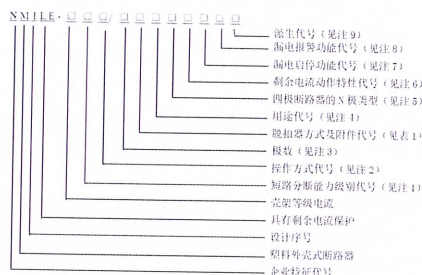 NM1LE-□□□/□□□□□□□□
派生代号（见注9）
漏电报警功能代号（见注8）
漏电启停功能代号（见注7）
剩余电流动作特性代号（见注6）
四极断路器的N极类型（见注5）
用途代号（见注4）
脱扣器方式及附件代号（见表1）
极数（见注3）
操作方式代号（见注2）
短路分断能力级别代号（见注1）
壳架等级电流
具有剩余电流保护
设计序号
塑料外壳式断路器
企业特征代号